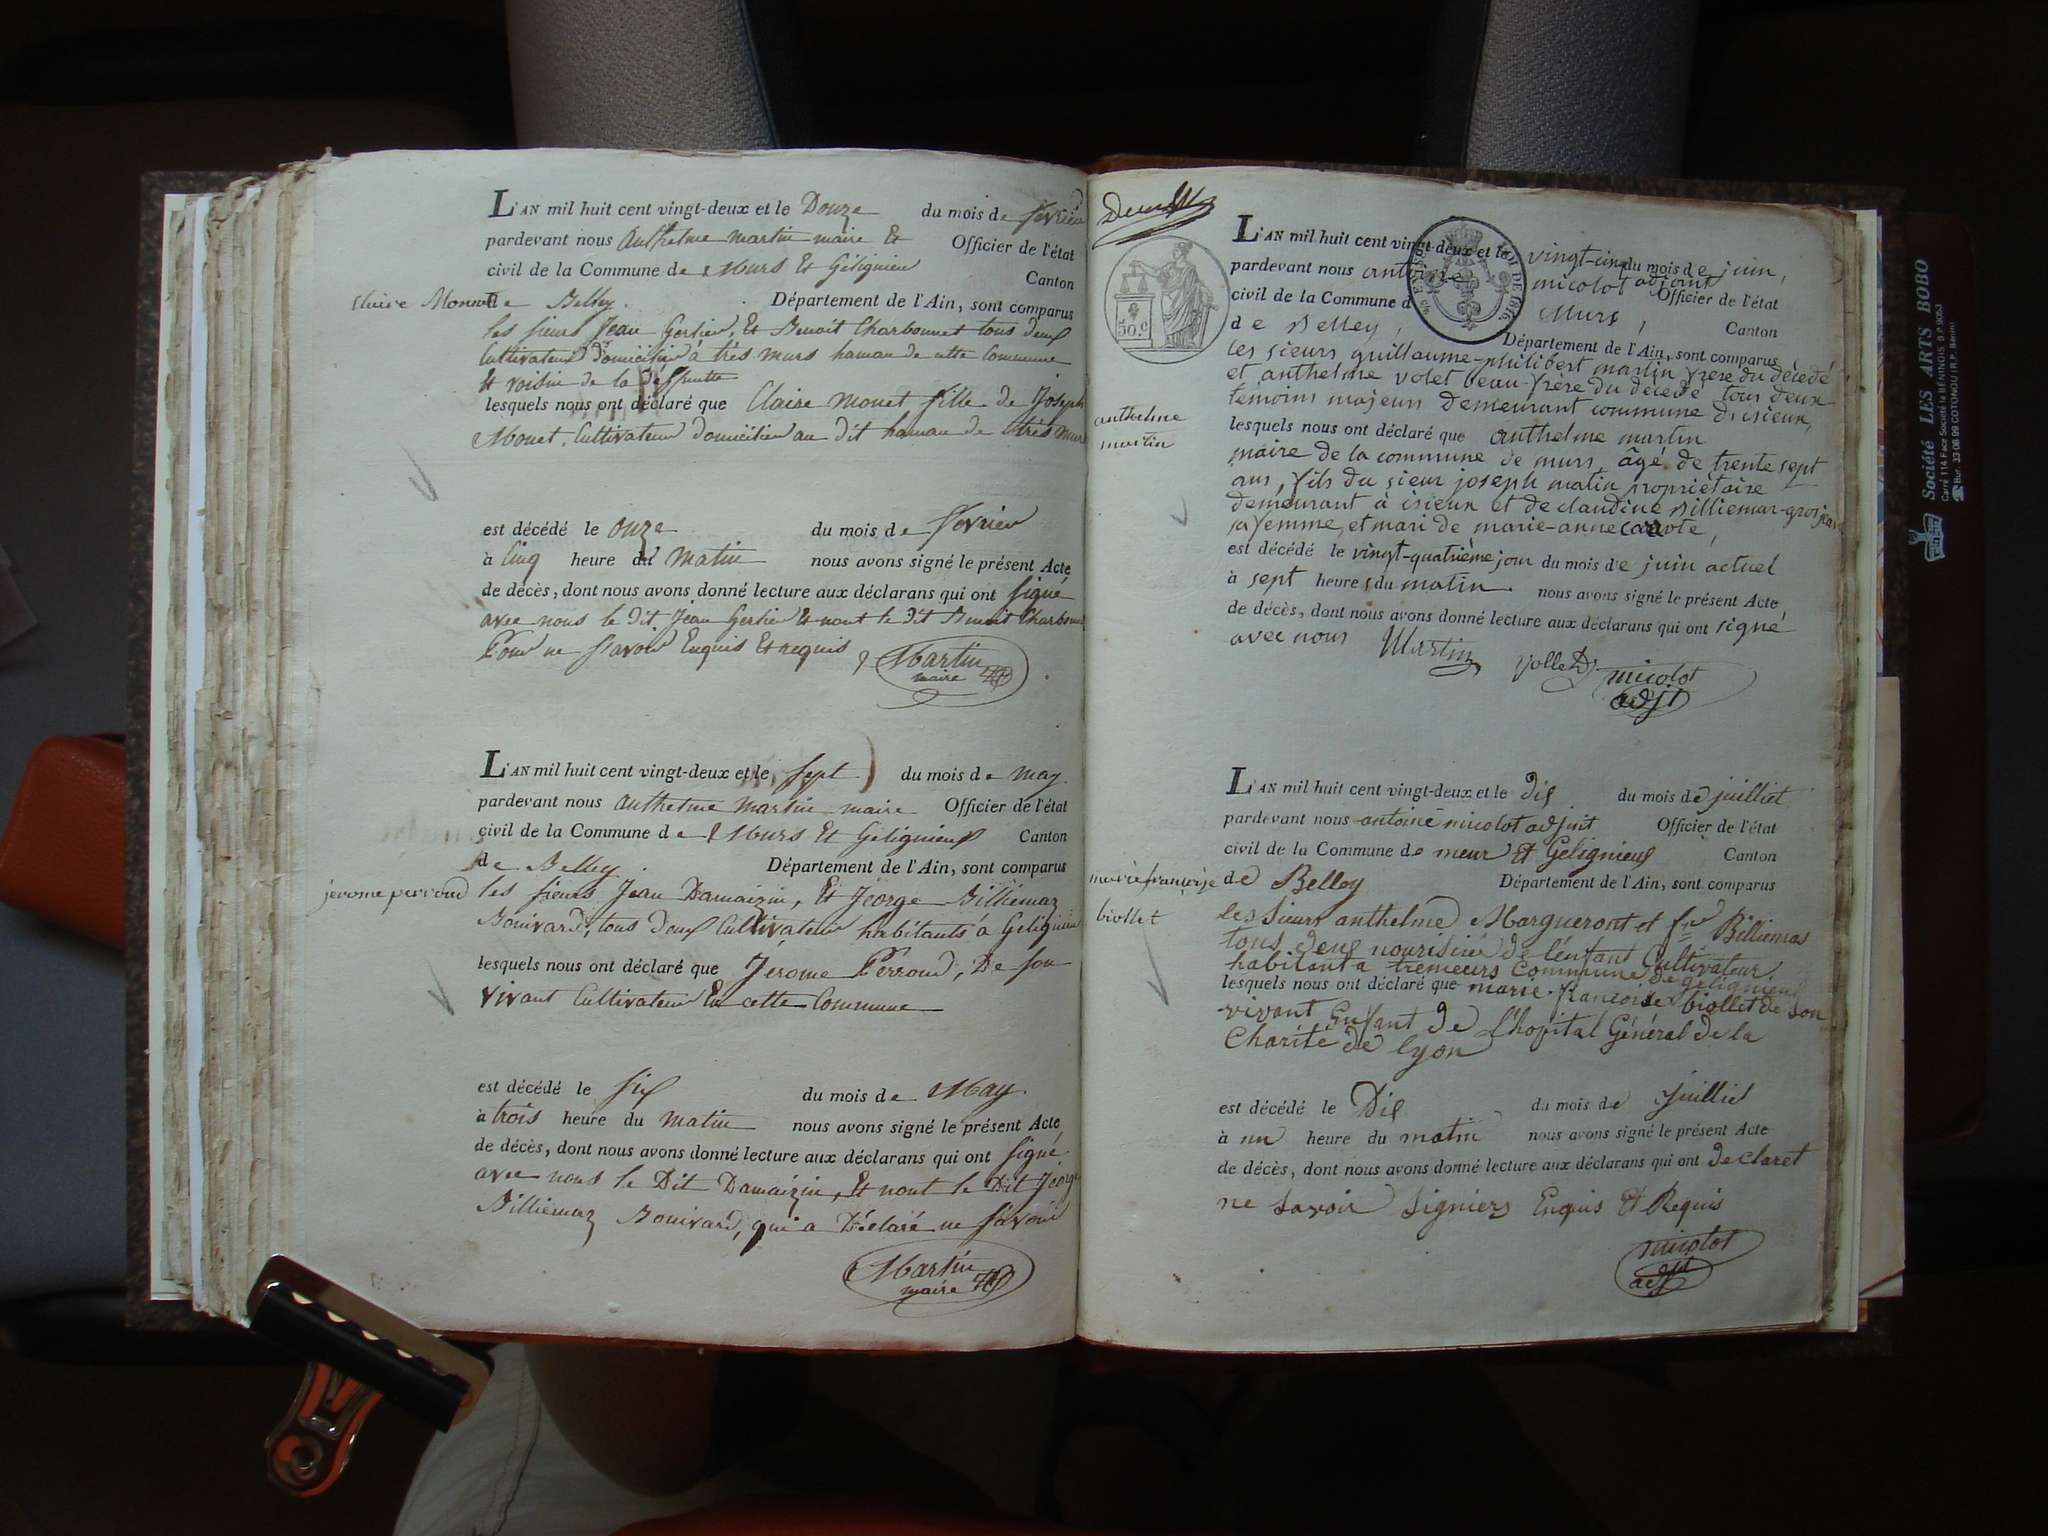 L'AN mil huit cent vingt-deux et le Douze du mois de fevrier
pardevant nous Anthelme martin maire Et Officier de l'état
civil de la Commune de Murs Et Gélignieu Canton
de Belley. Département de l'Ain, sont comparus
Claire Monet
les sieurs Jean Gerlier, Et Benoit Charbonnet tous deux
Cultivateurs domicilié à très murs hamau de cette Commune
Et voisin de la
lesquels nous ont déclaré que Claire monet fille de Joseph
Monet, Cultivateur domicilier au dit hamau de très murs
est décédé le onze du mois de fevrier
à Cinq heure du matin nous avons signé le présent Acte
de décès, dont nous avons donné lecture aux déclarans qui ont signé
avec nous le dit Jean Gerlier Et nont le dit Benoit Charbonnet
Pour ne savoir Enquis Et requis
Martin
maire
L'AN mil huit cent vingt-deux et le sept du mois de may
pardevant nous anthelme martin maire Officier de l'état
civil de la Commune de Murs Et Gelignieux Canton
de Belley. Département de l'Ain, sont comparus
jerome perroud
les sieurs Jean Damaizin, Et Jeorge Billiemaz
Bouivard, tous deux Cultivateur habitants à Gelignieu
lesquels nous ont déclaré que Jerome Perroud, De son
vivant Cultivateur En cette Commune
est décédé le six du mois de May
à trois heure du matin nous avons signé le présent Acte
de décès, dont nous avons donné lecture aux déclarans qui ont signé
avec nous le Dit Damaizin, Et nont le Dit Jeorge
Billiemaz Bouivard, qui a Déclaré ne savoir
Martin
maire
50 c
L'AN mil huit cent vingt-deux et le vingt-cinq du mois de juin,
pardevant nous antoine micolot adjoint Officier de l'état
civil de la Commune d Murs, Canton
de Belley, Département de l'Ain, sont comparus
les sieurs guillaume-philibert martin frère du décédé
et anthelme volet beau-frère du décédé tous deux
témoins majeurs demeurant commune d'isieux,
anthelme
martin
lesquels nous ont déclaré que anthelme martin
maire de la commune de murs, âgé de trente sept
ans, fils du sieur joseph matin propriétaire
demeurant à isieux et de claudine Billiemar-grosjean
sa femme, et mari de marie-anne
est décédé le vingt-quatrième jour du mois de juin actuel
à sept heures du matin nous avons signé le présent Acte
de décès, dont nous avons donné lecture aux déclarans qui ont signé
avec nous Martin vollet micolot
adjt
L'AN mil huit cent vingt-deux et le dix du mois de juilliet
pardevant nous antoine micolot adjoint Officier de l'état
civil de la Commune de meur Et Gelignieux Canton
de Belley Département de l'Ain, sont comparus
marie françoise
biollet
les sieurs anthelme Margueront et Billiemas
tous deux nourisiié de l'enfant Cultivateur
habitant a tremeurs Commune de gelignieux
lesquels nous ont déclaré que marie-francoise biollet de son
vivant Enfant de l'hopital Général de la
Charité de lyon
est décédé le Dix du mois de juilliet
à un heure du matin nous avons signé le présent Acte
de décès, dont nous avons donné lecture aux déclarans qui ont declaret
ne savoir signiers Enquis Et Requis
micolot
adjt
Société LES ARTS BOBO